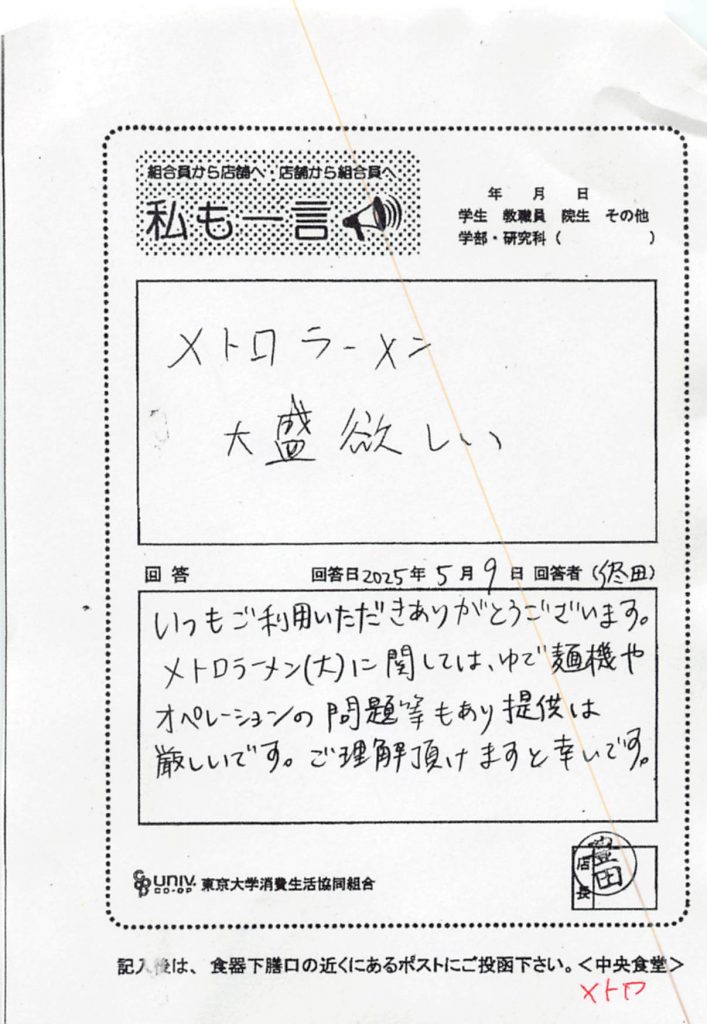 組合員から店舗へ・店舗から組合員へ
私も一言
年 月 日
学生 教職員 院生 その他
学部・研究科( )
メトロラーメン
大盛欲しい
回答 回答日2025年5月9日 回答者(佟田)
いつもご利用いただきありがとうございます。
メトロラーメン(大)に関しては、ゆで麺機や
オペレーションの問題等もあり提供は
厳しいです。ご理解頂けますと幸いです。
店長
豊田
CO-OP UNIV. CO-OP 東京大学消費生活協同組合
記入後は、食器下膳口の近くにあるポストにご投函下さい。<中央食堂>
メトロ